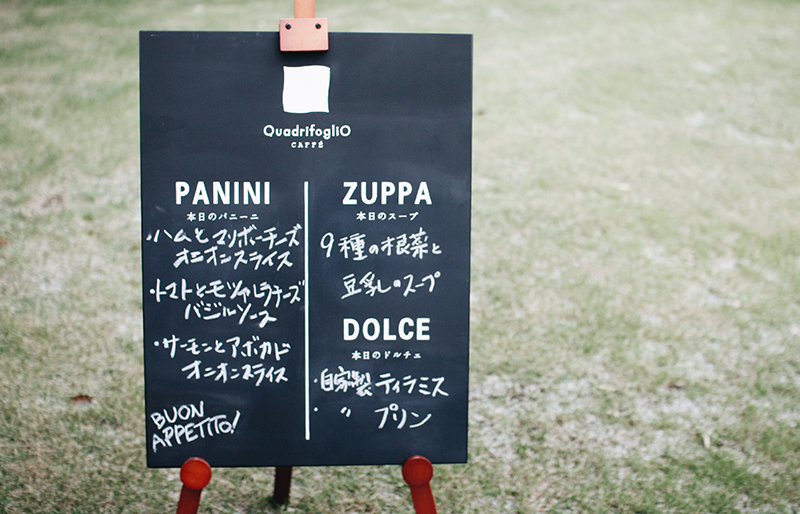 QuadrifogliO
CAFFÉ
PANINI
本日のパニーニ
・ハムとマリボーチーズ
オニオンスライス
・トマトとモツァレラチーズ
バジルソース
・サーモンとアボカド
オニオンスライス
BUON
APPETITO!
ZUPPA
本日のスープ
9種の根菜と
豆乳のスープ
DOLCE
本日のドルチェ
・自家製ティラミス
・〃 プリン